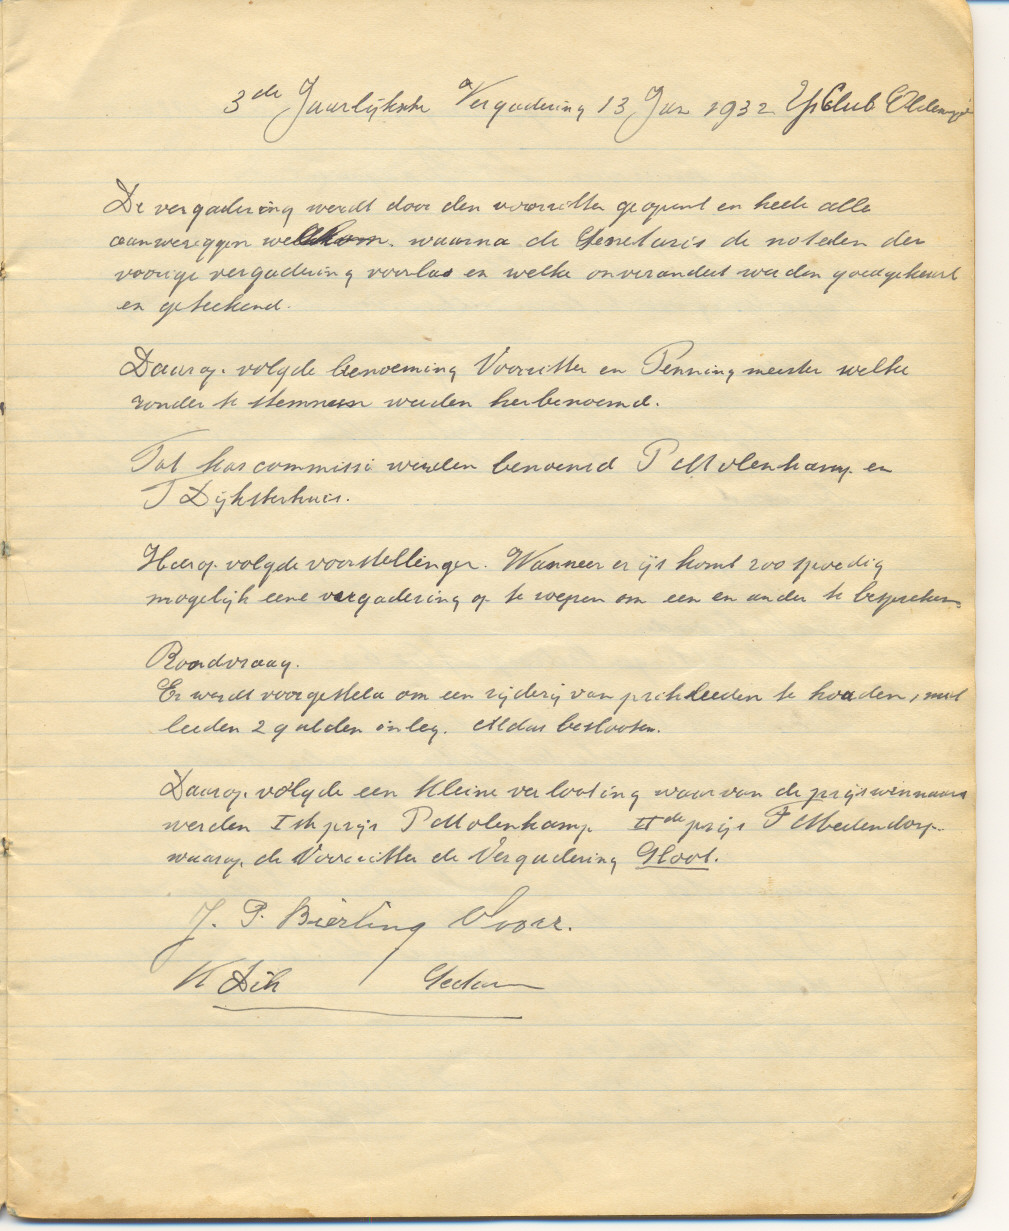 3de Jaarlijksche Vergadering 13 Jan 1932 IJsClub
De vergadering werdt door den voorzitter geopent en heete alle
aanweziggen welkom. waarna de Secretaris de noteden der
voorige vergadering voorlas en welke onverandert werden goedgekeurt
en geteekend.
Daarop volgde benoeming Voorzitter en Penningmeester welke
zonder te stemmen werden herbenoemd.
Tot kascommissi werden benoemd P Molenkamp en
T Dijksterhuis.
Hierop volgde voorstellingen. Wanneer er ijs komt zoo spoedig
mogelijk eene vergadering op te roepen om een en ander te bespreken.
Rondvraag.
Er werdt voorgesteld om een rijderij van te houden, met
leeden 2 gulden inleg. Aldus beslooten.
Daarop volgde een kleine verlooting waarvan de prijswinnaars
werden Iste prijs P Molenkamp IIde prijs F Medendorp
waarop de Voorzitter de Vergadering Sloot.
J. P. Bierling Voorz.
K Dik Secretaris